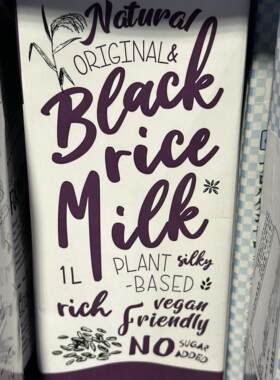 Natural
ORIGINAL&
Black
rice
Milk
1L PLANT silky
-BASED
rich vegan
Friendly
NO SUGAR
ADDED